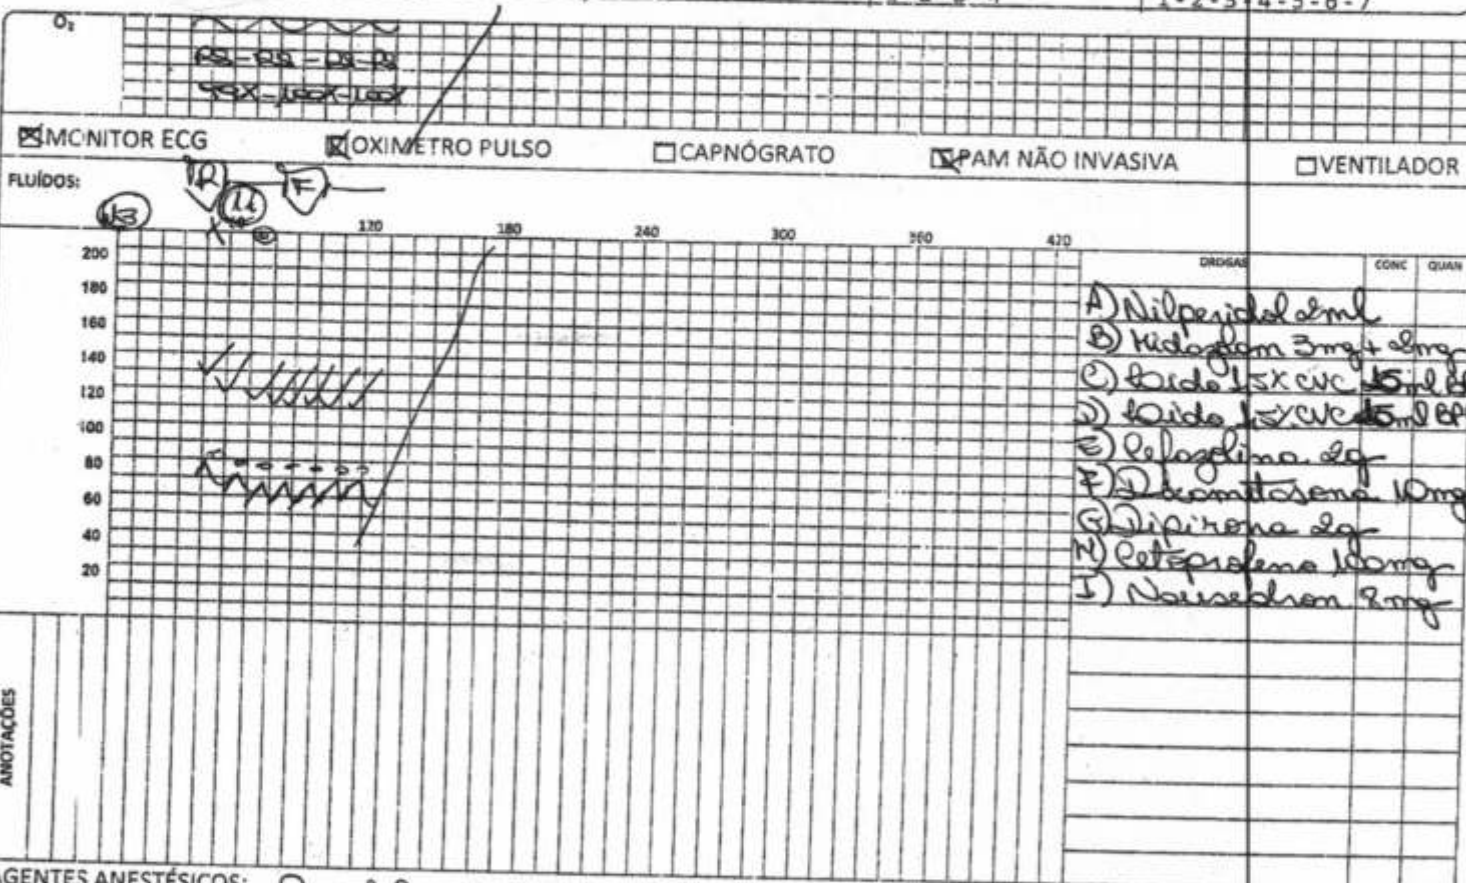 1-2-3-4-5-6-7
O₂
RS-RS-RS-RS
99%-100%-100%
MONITOR ECG OXIMETRO PULSO CAPNÓGRATO PAM NÃO INVASIVA VENTILADOR
FLUÍDOS: F
120 180 240 300 360 420
200
180
160
140
120
100
80
60
40
20
DROGAS CONC QUAN
A) Nilperidol 2ml
B) Midazolam 3mg + 2mg
C) 1,5% CVC 15ml
D) 1,5% CVC 15ml
E) Cefazolina 2g
F) Dexametasona 10mg
G) Dipirona 2g
H) Cetoprofeno 100mg
I) Nausedron 8mg
ANOTAÇÕES
AGENTES ANESTÉSICOS: